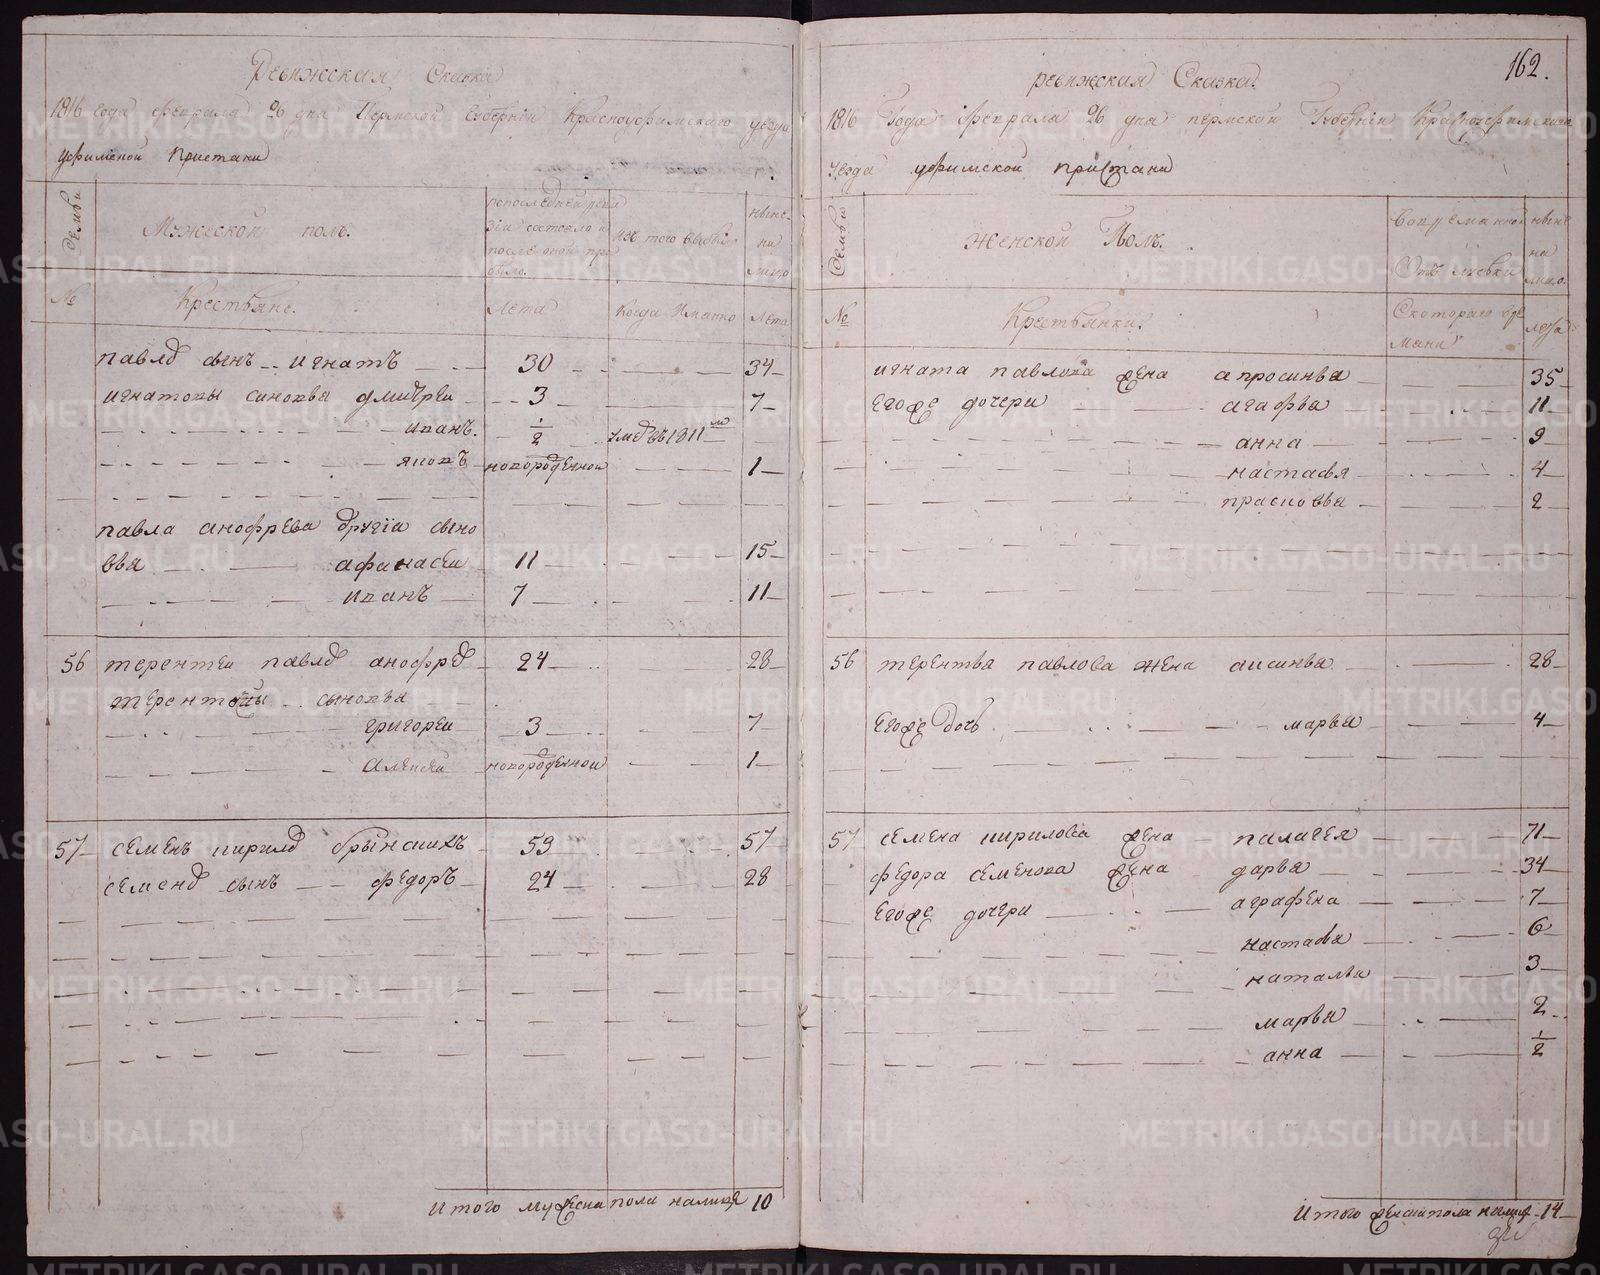 Ревижская Сказка
1816 года февраля 26 дня Пермской Губернии Красноуфимского уезда
уфимской пристани
Семьи
Мужеской полъ.
по последней реви
зiи состояло и
после оной при
было.
Изъ того выбыло
ныне
на
лицо
№
Крестьяне.
Лета
Когда Имянно
Лета
павлд сынъ игнатъ 30 34
игнатовы синовья дмитреи 3 7
иванъ. 1/2 умеръ въ 1811м
яковъ новорожденной 1
павла анофрева другiя сыно
вья афанасеи 11 15
иванъ 7 11
56 терентеи павлд анофрд 24 28
терентьевы сыновья
григореи 3 7
алексеи новорожденнои 1
57 семенъ кирилд брынскихъ 53 57
семенд сынъ федоръ 24 28
Итого мужеска пола налице 10
162.
ревижская Сказка.
1816 Года февраля 26 дня пермской Губернiи Красноуфимскаго
уезда уфимской пристани
Семьи
Женской Полъ.
Во временной
Отъ лучки
ныне
на
лицо.
№
Крестьянки.
С котораго вре
мани
лета
игната павлова жена апросинья 35
Его же дочери агафья 11
анна 9
настасья 4
прасковья 2
56 терентья павлова жена аксинья 28
Его же дочь марья 4
57 семена кирилова жена палагея 71
федора семенова жена дарья 34
Его же дочери аграфена 7
настасья 6
наталья 3
марья 2
анна 1/2
Итого женска пола налице 14
METRIKI.GASO-URAL.RU